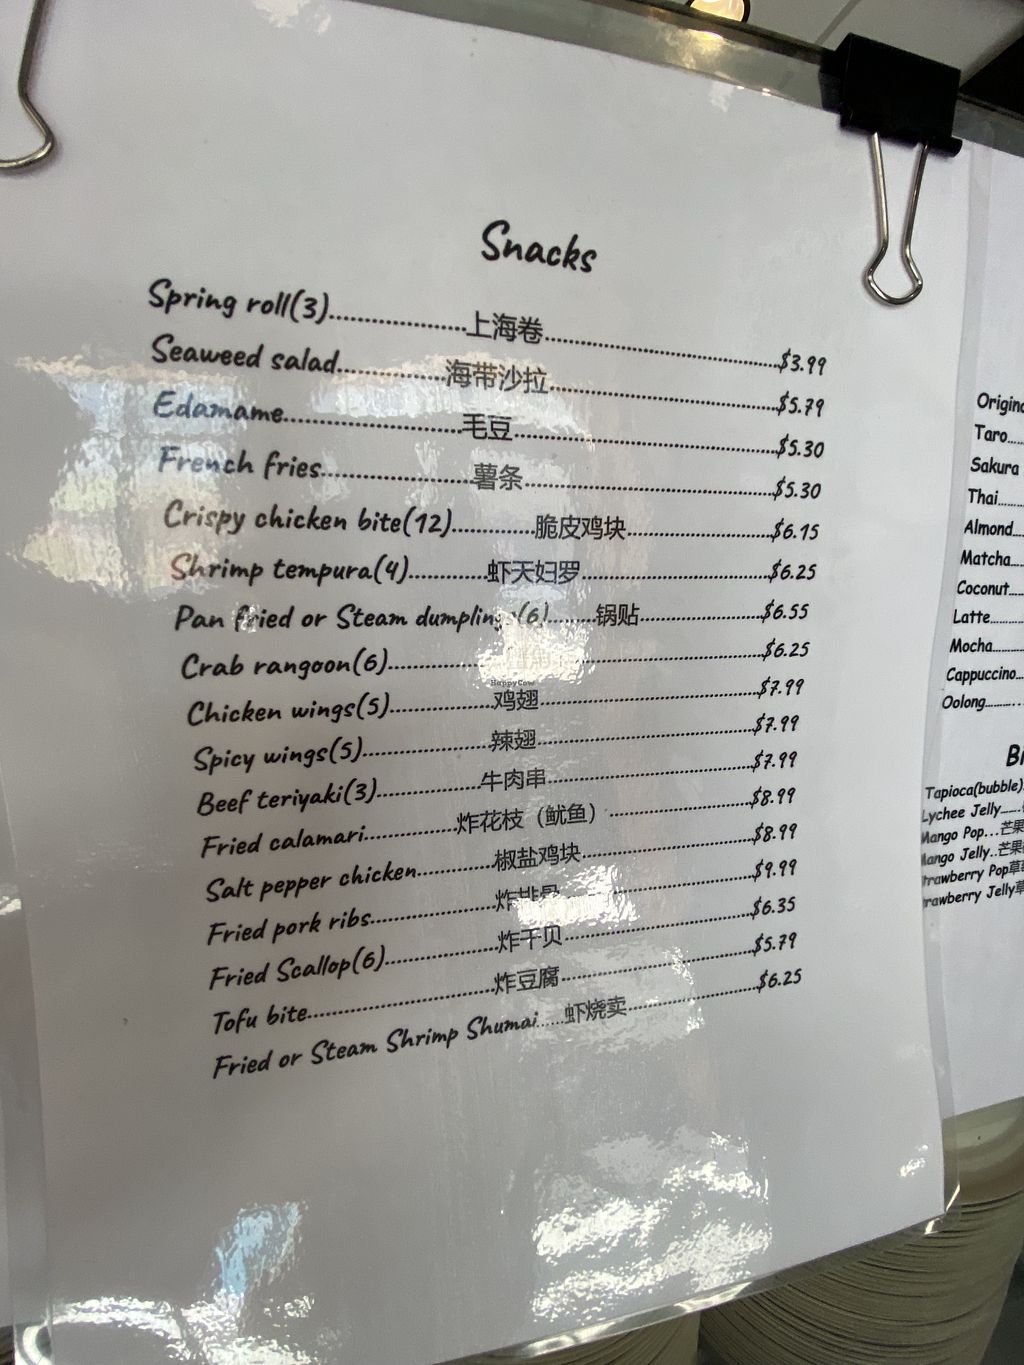 Snacks
Spring roll(3)........上海卷........$3.99
Seaweed salad........海带沙拉........$5.79
Edamame........毛豆........$5.30
French fries........薯条........$5.30
Crispy chicken bite(12)........脆皮鸡块........$6.15
Shrimp tempura(4)........虾天妇罗........$6.25
Pan fried or Steam dumplings(6)........锅贴........$6.55
Crab rangoon(6)................$6.25
HappyCow
Chicken wings(5)........鸡翅........$7.99
Spicy wings(5)........辣翅........$7.99
Beef teriyaki(3)........牛肉串........$7.99
Fried calamari........炸花枝（鱿鱼）........$8.99
Salt pepper chicken........椒盐鸡块........$8.99
Fried pork ribs........炸排骨........$9.99
Fried Scallop(6)........炸干贝........$6.35
Tofu bite........炸豆腐........$5.79
Fried or Steam Shrimp Shumai......虾烧卖........$6.25
Taro....
Sakura
Thai........
Almond....
Matcha....
Coconut....
Latte........
Mocha......
Cappuccino...
Oolong........
Tapioca(bubble)
Lychee Jelly......
Mango Pop...芒果
Mango Jelly..芒果
Strawberry Pop草
Strawberry Jelly草